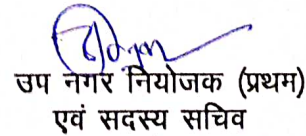 उप नगर नियोजक (प्रथम)
एवं सदस्य सचिव